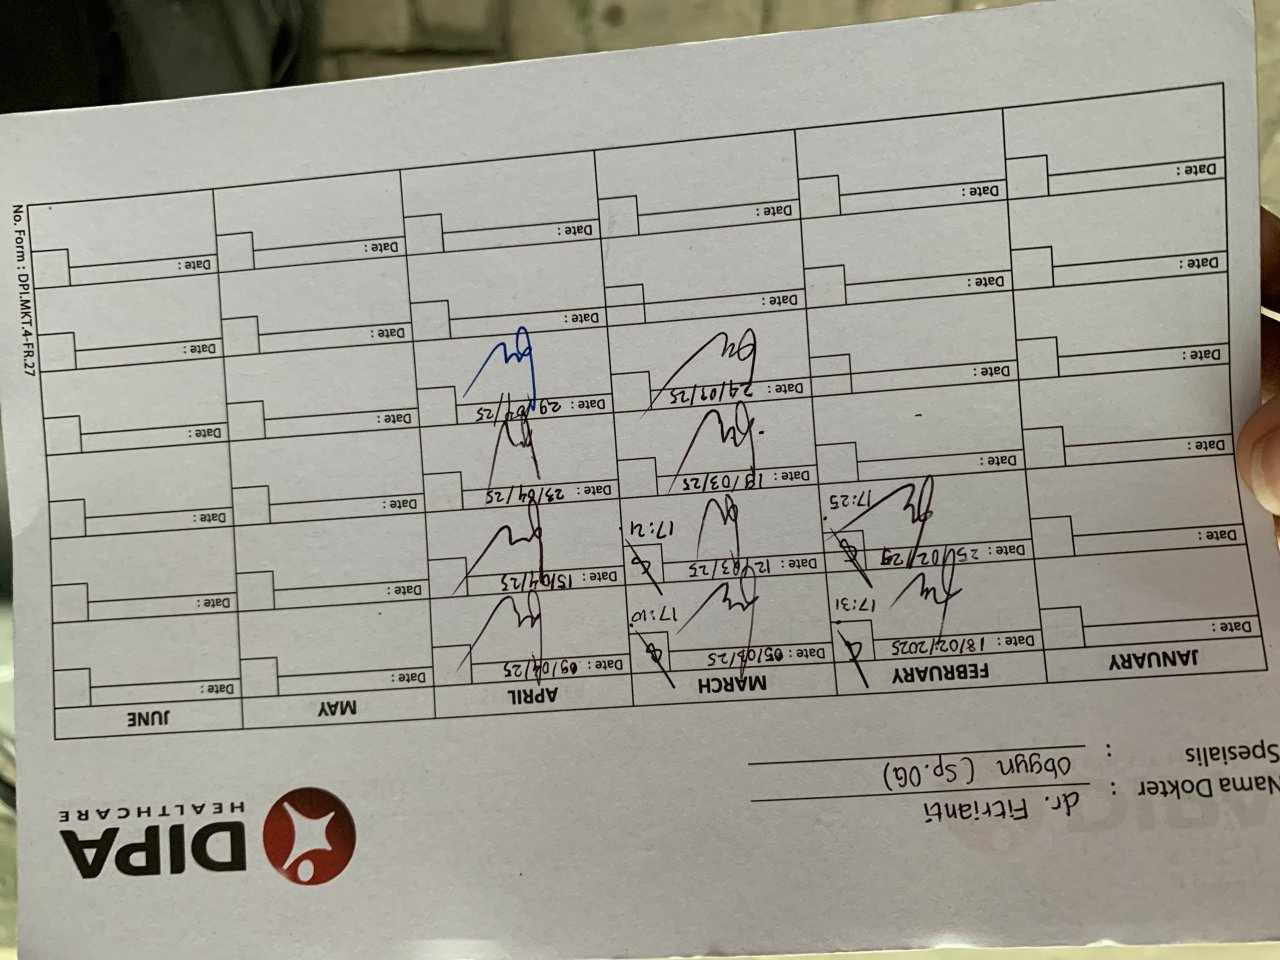 DIPA
HEALTHCARE
Nama Dokter : dr. Fitrianti
Spesialis : Obgyn (Sp.OG)
JANUARY FEBRUARY MARCH APRIL MAY JUNE
Date : Date : 18/02/2025 Date : 05/03/25 Date : 09/04/25 Date : Date :
17:31 17:10
Date : Date : 25/02/25 Date : 12/03/25 Date : 15/04/25 Date : Date :
17:25 17:21
Date : Date : Date : 19/03/25 Date : 23/04/25 Date : Date :
Date : Date : Date : Date : 29/04/25 Date : Date :
Date : Date : Date : Date : Date : Date :
Date : Date : Date : Date : Date : Date :
No. Form : DPI.MKT.4-FR.27